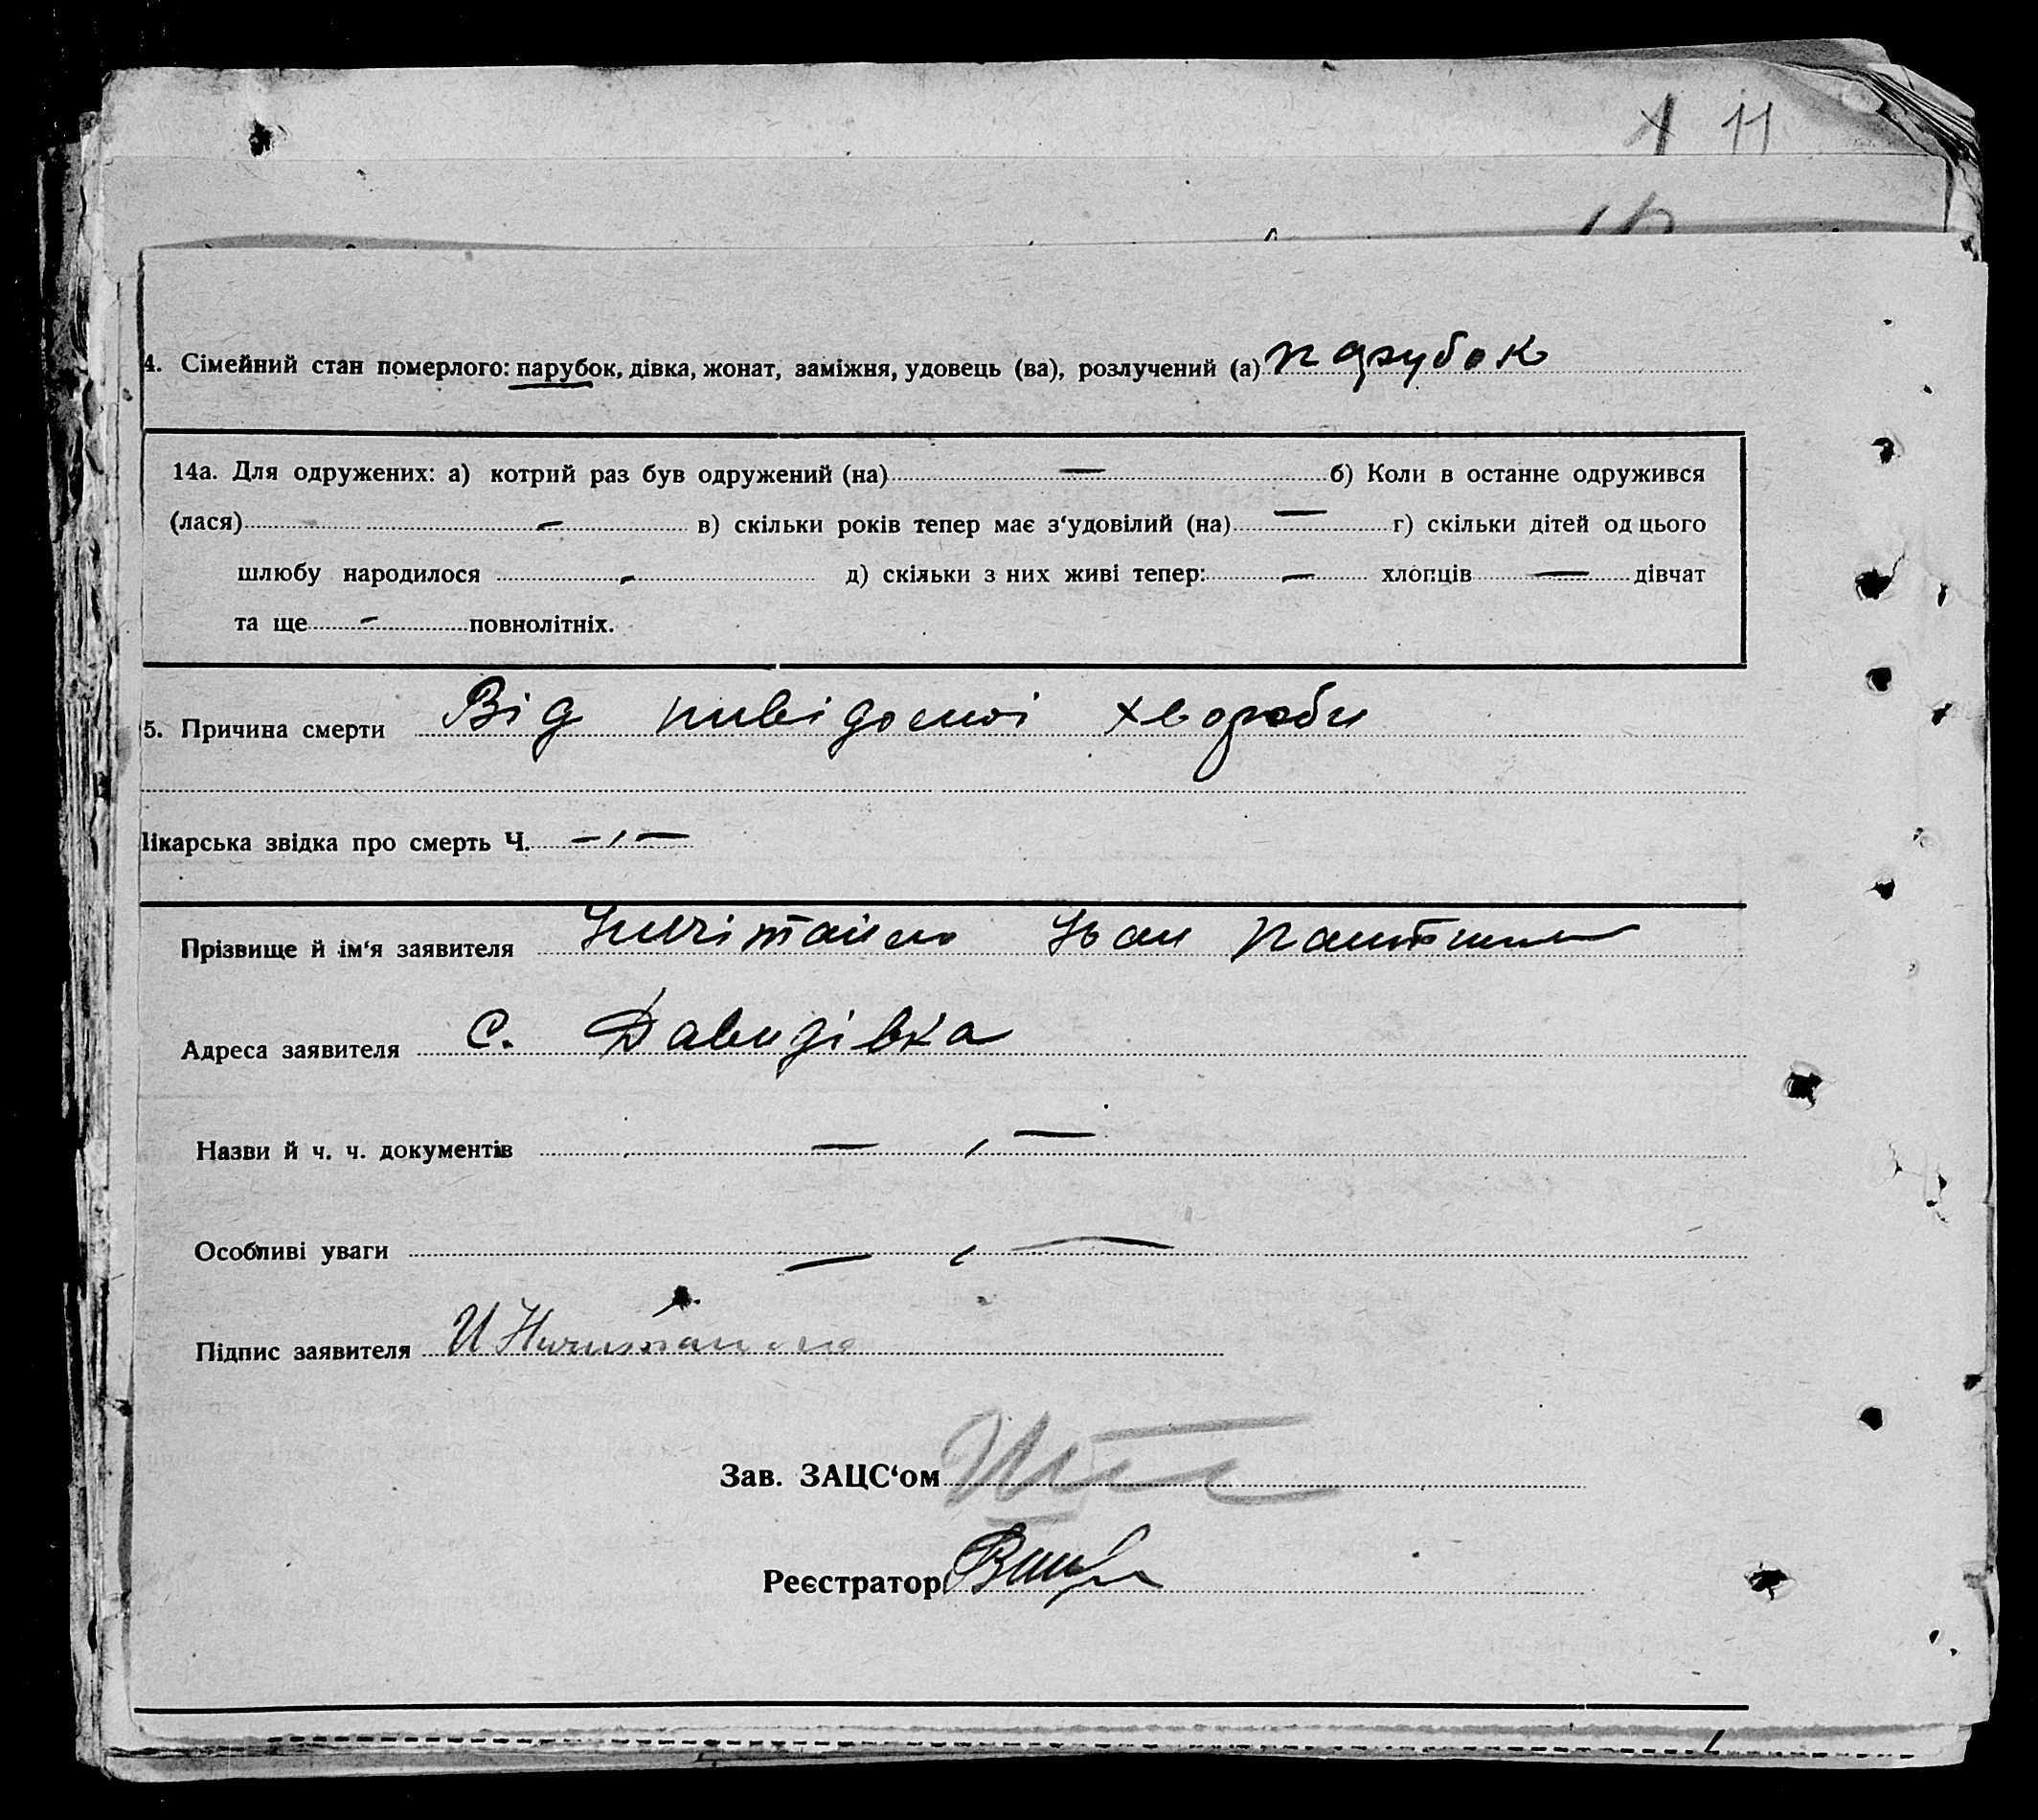 11
4. Сімейний стан померлого: парубок, дівка, жонат, заміжня, удовець (ва), розлучений (а) парубок
14а. Для одружених: а) котрий раз був одружений (на) — б) Коли в останне одружився
(лася) — в) скільки років тепер має з‘удовілий (на) — г) скільки дітей од цього
шлюбу народилося - д) скільки з них живі тепер: — хлопців — дівчат
та ще - повнолітніх.
5. Причина смерти Від невідомої хвороби
лікарська звідка про смерть Ч. — , —
Прізвище й ім‘я заявителя Іван
Адреса заявителя С. Давидівка
Назви й ч. ч. документів — , —
Особливі уваги — , —
Підпис заявителя
Зав. ЗАЦС‘ом
Реєстратор